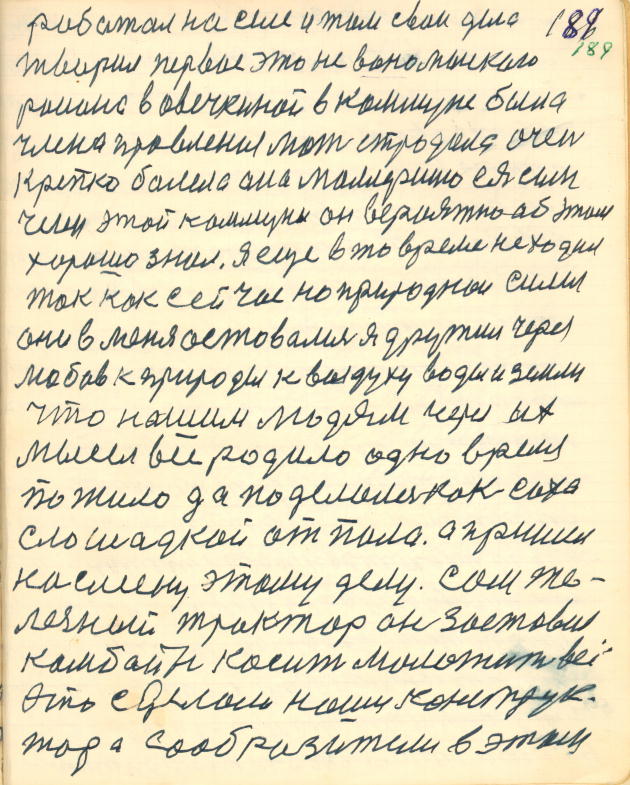 работал на селе и там свои дела 188
189
творил первое это не
района в овечкиной в коммуне была
члена провления мат страдала очен
крепко болела она малярию ея сын
член этой коммуны он вероятно аб этом
хорошо знал. я еще в то время не ходил
так как сейчас но природнои силы
они в меня оставался я дружил через
любов к природы к воздуху воды и земли
что нашим людям через их
мысел всё родило одно время
пожило да поделилося как соха
с лошадкой отпала. а пришел
на смену этому делу. сам же-
лезный трактор он заставил
камбайн косит молотит всё
это сделали наши конструк-
тора сообразители в этом